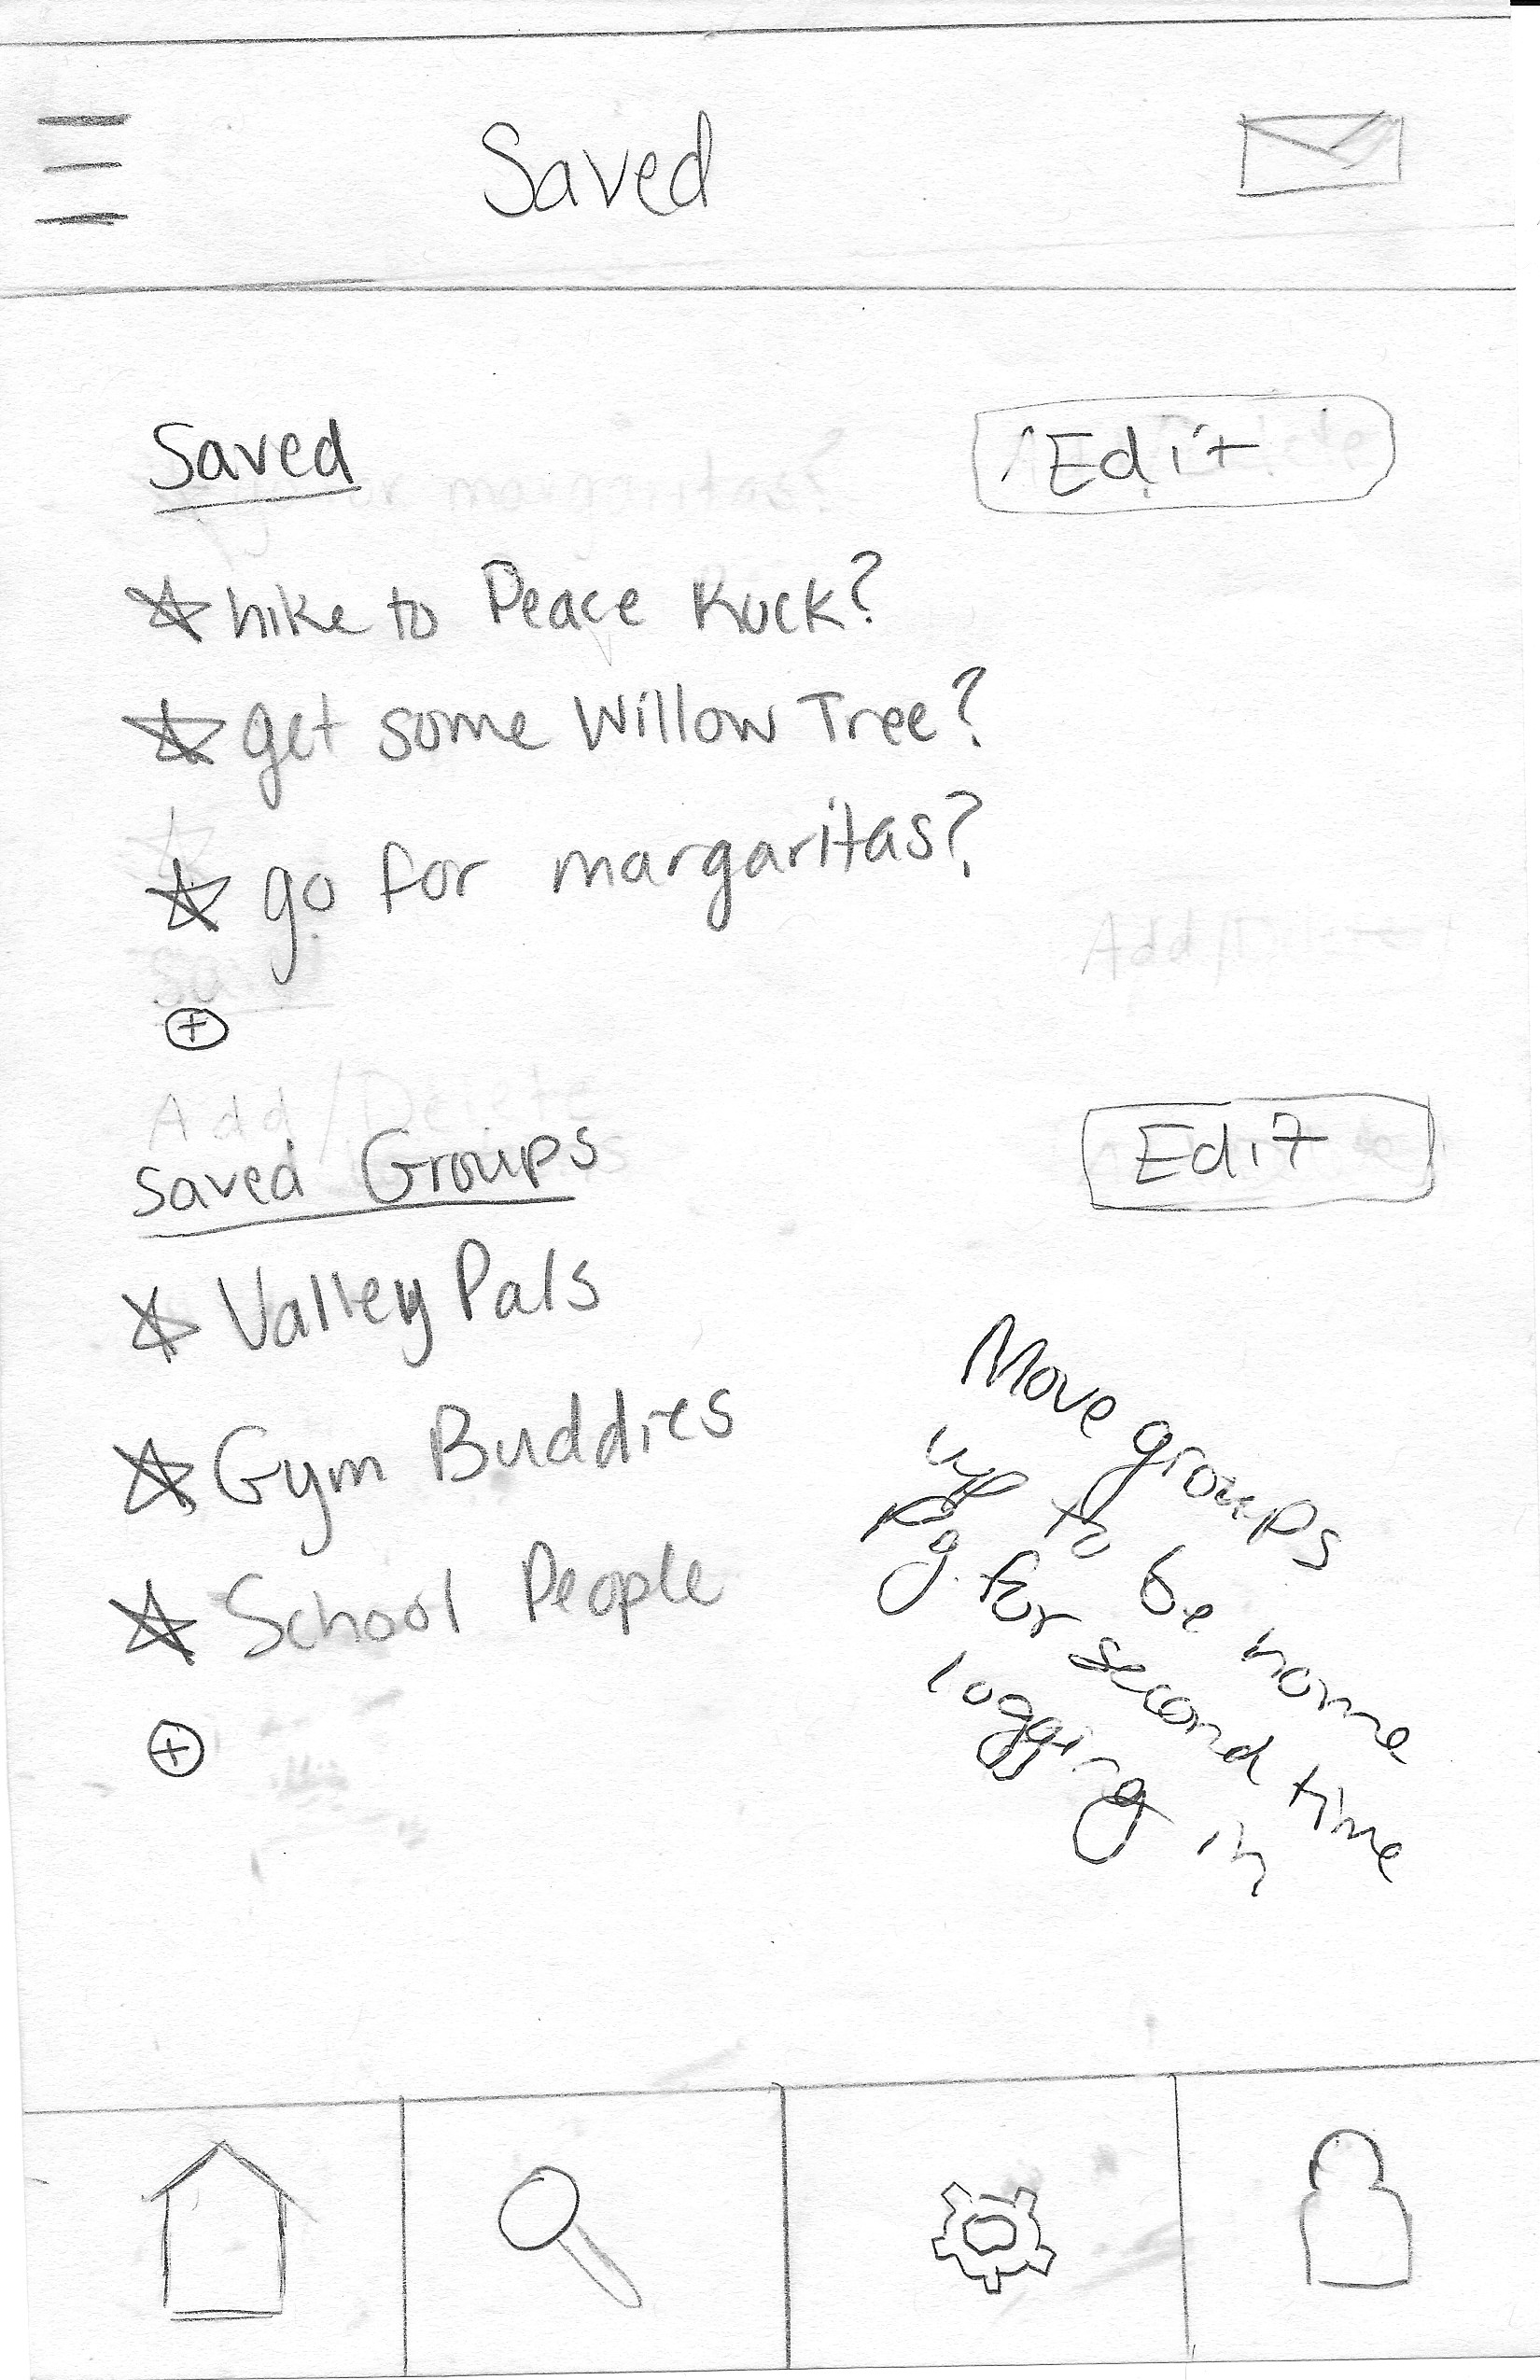 Saved
Saved
Edit
hike to Peace Ruck?
get some Willow Tree?
go for margaritas?
Add/Delete
Add/Delete
Saved Groups
Edit
Valley Pals
Gym Buddies
School People
Move groups
up to be home
pg. for second time
logging in